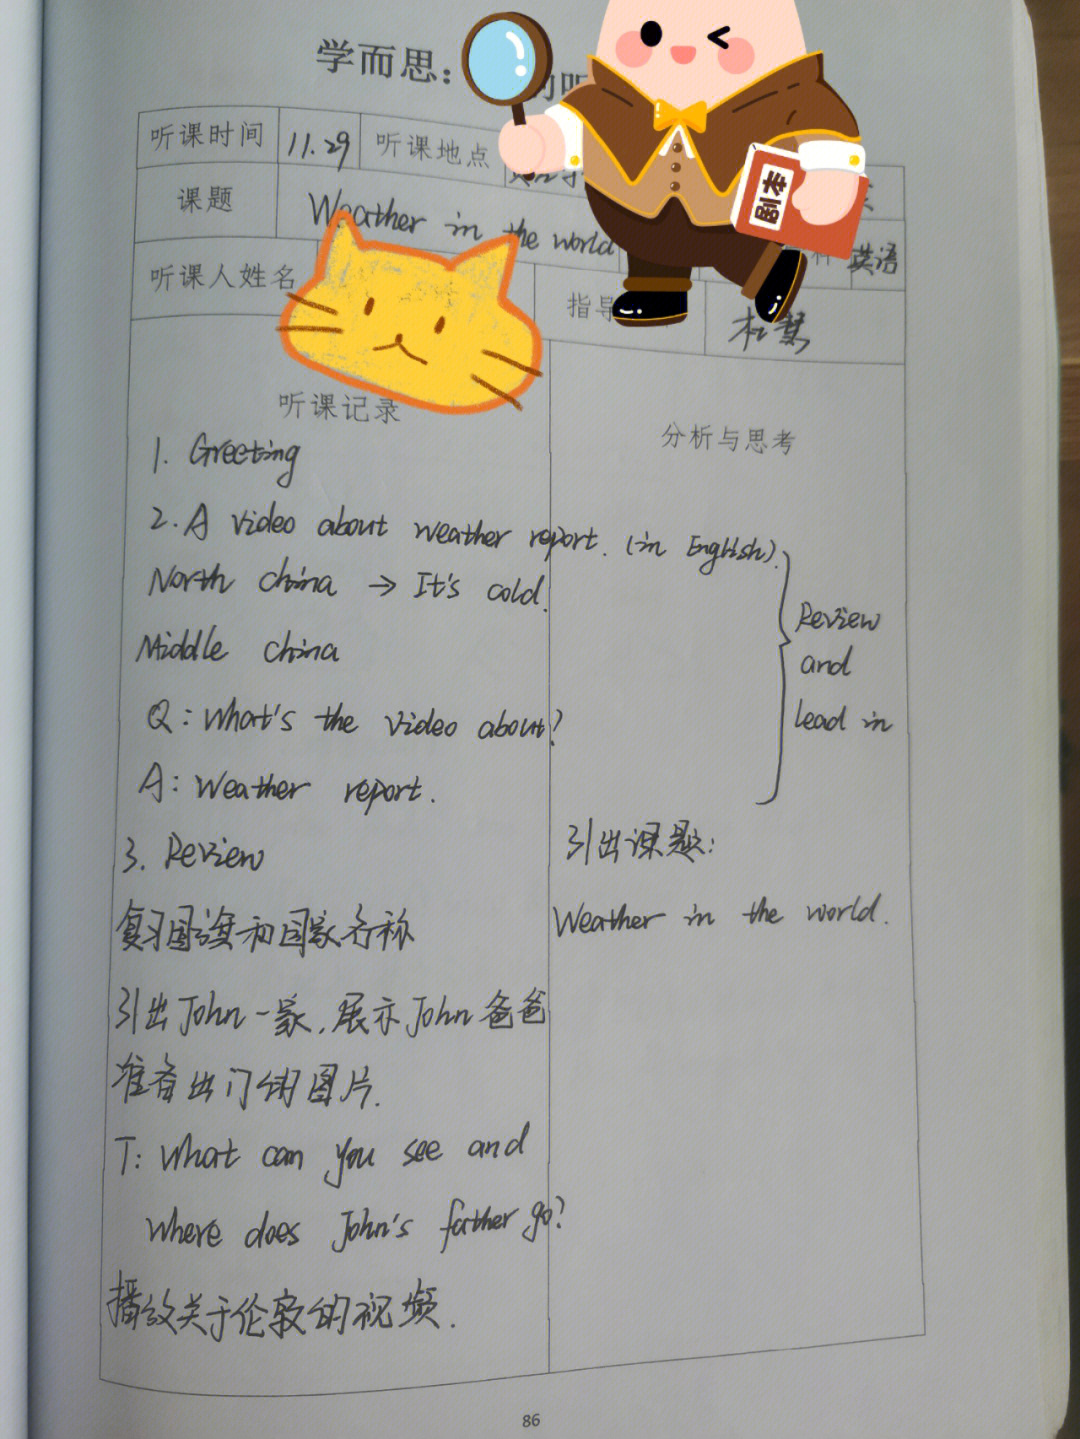 学而思：
听课时间 11.29 听课地点
课题 Weather in the world 英语
听课人姓名 指导
听课记录 分析与思考
1. Greeting
2. A video about weather report. (in English).
North china → It's cold.
Middle china
Review
and
lead in
Q: What's the video about?
A: Weather report.
3. Review
引出课题:
复习国旗和国家名称
Weather in the world.
引出John一家,展示John爸爸
准备出门的图片.
T: What can you see and
where does John's father go?
播放关于伦敦的视频.
剧本
86